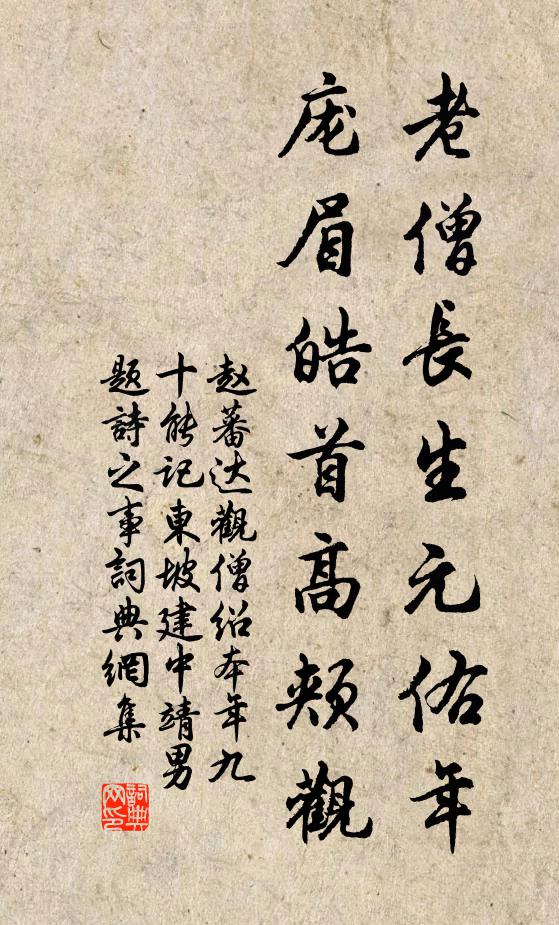 老僧長生元佑年
庞眉皓首高颊觀
赵蕃达觀僧绍本年九
十能记東坡建中靖男
题詩之事詞典網集
詞典網印